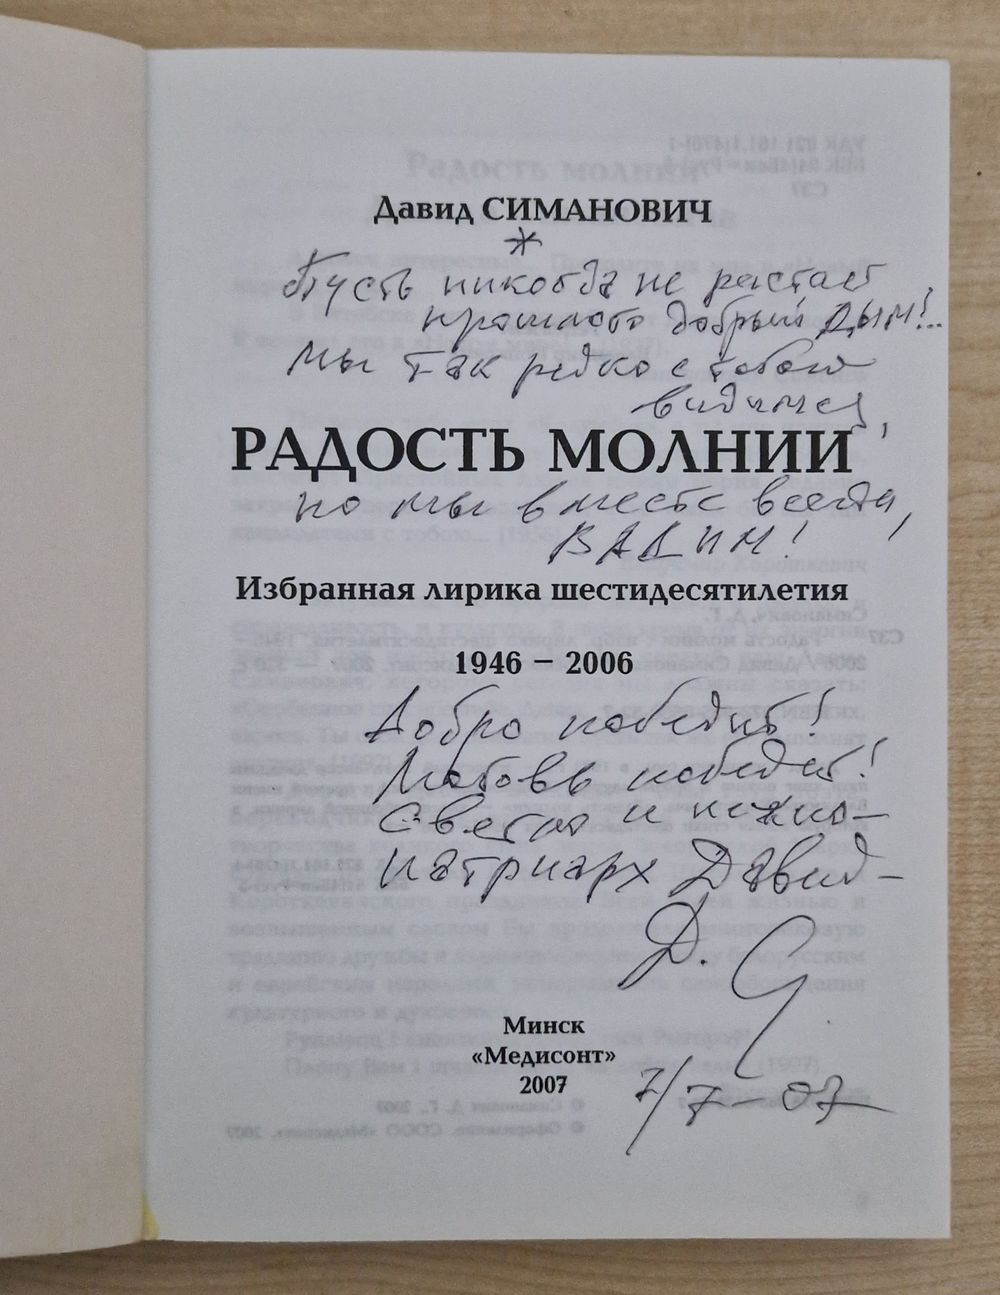 Давид СИМАНОВИЧ
*
Пусть никогда не растает
прошлого добрый дым!..
Мы так редко с тобою
видимся,
РАДОСТЬ МОЛНИИ
но мы вместе всегда,
ВАДИМ!
Избранная лирика шестидесятилетия
1946 – 2006
Добро победит!
Любовь победит!
Светло и нежно –
патриарх Давид –
Д. С
Минск
«Медисонт»
2007
7/7 – 07